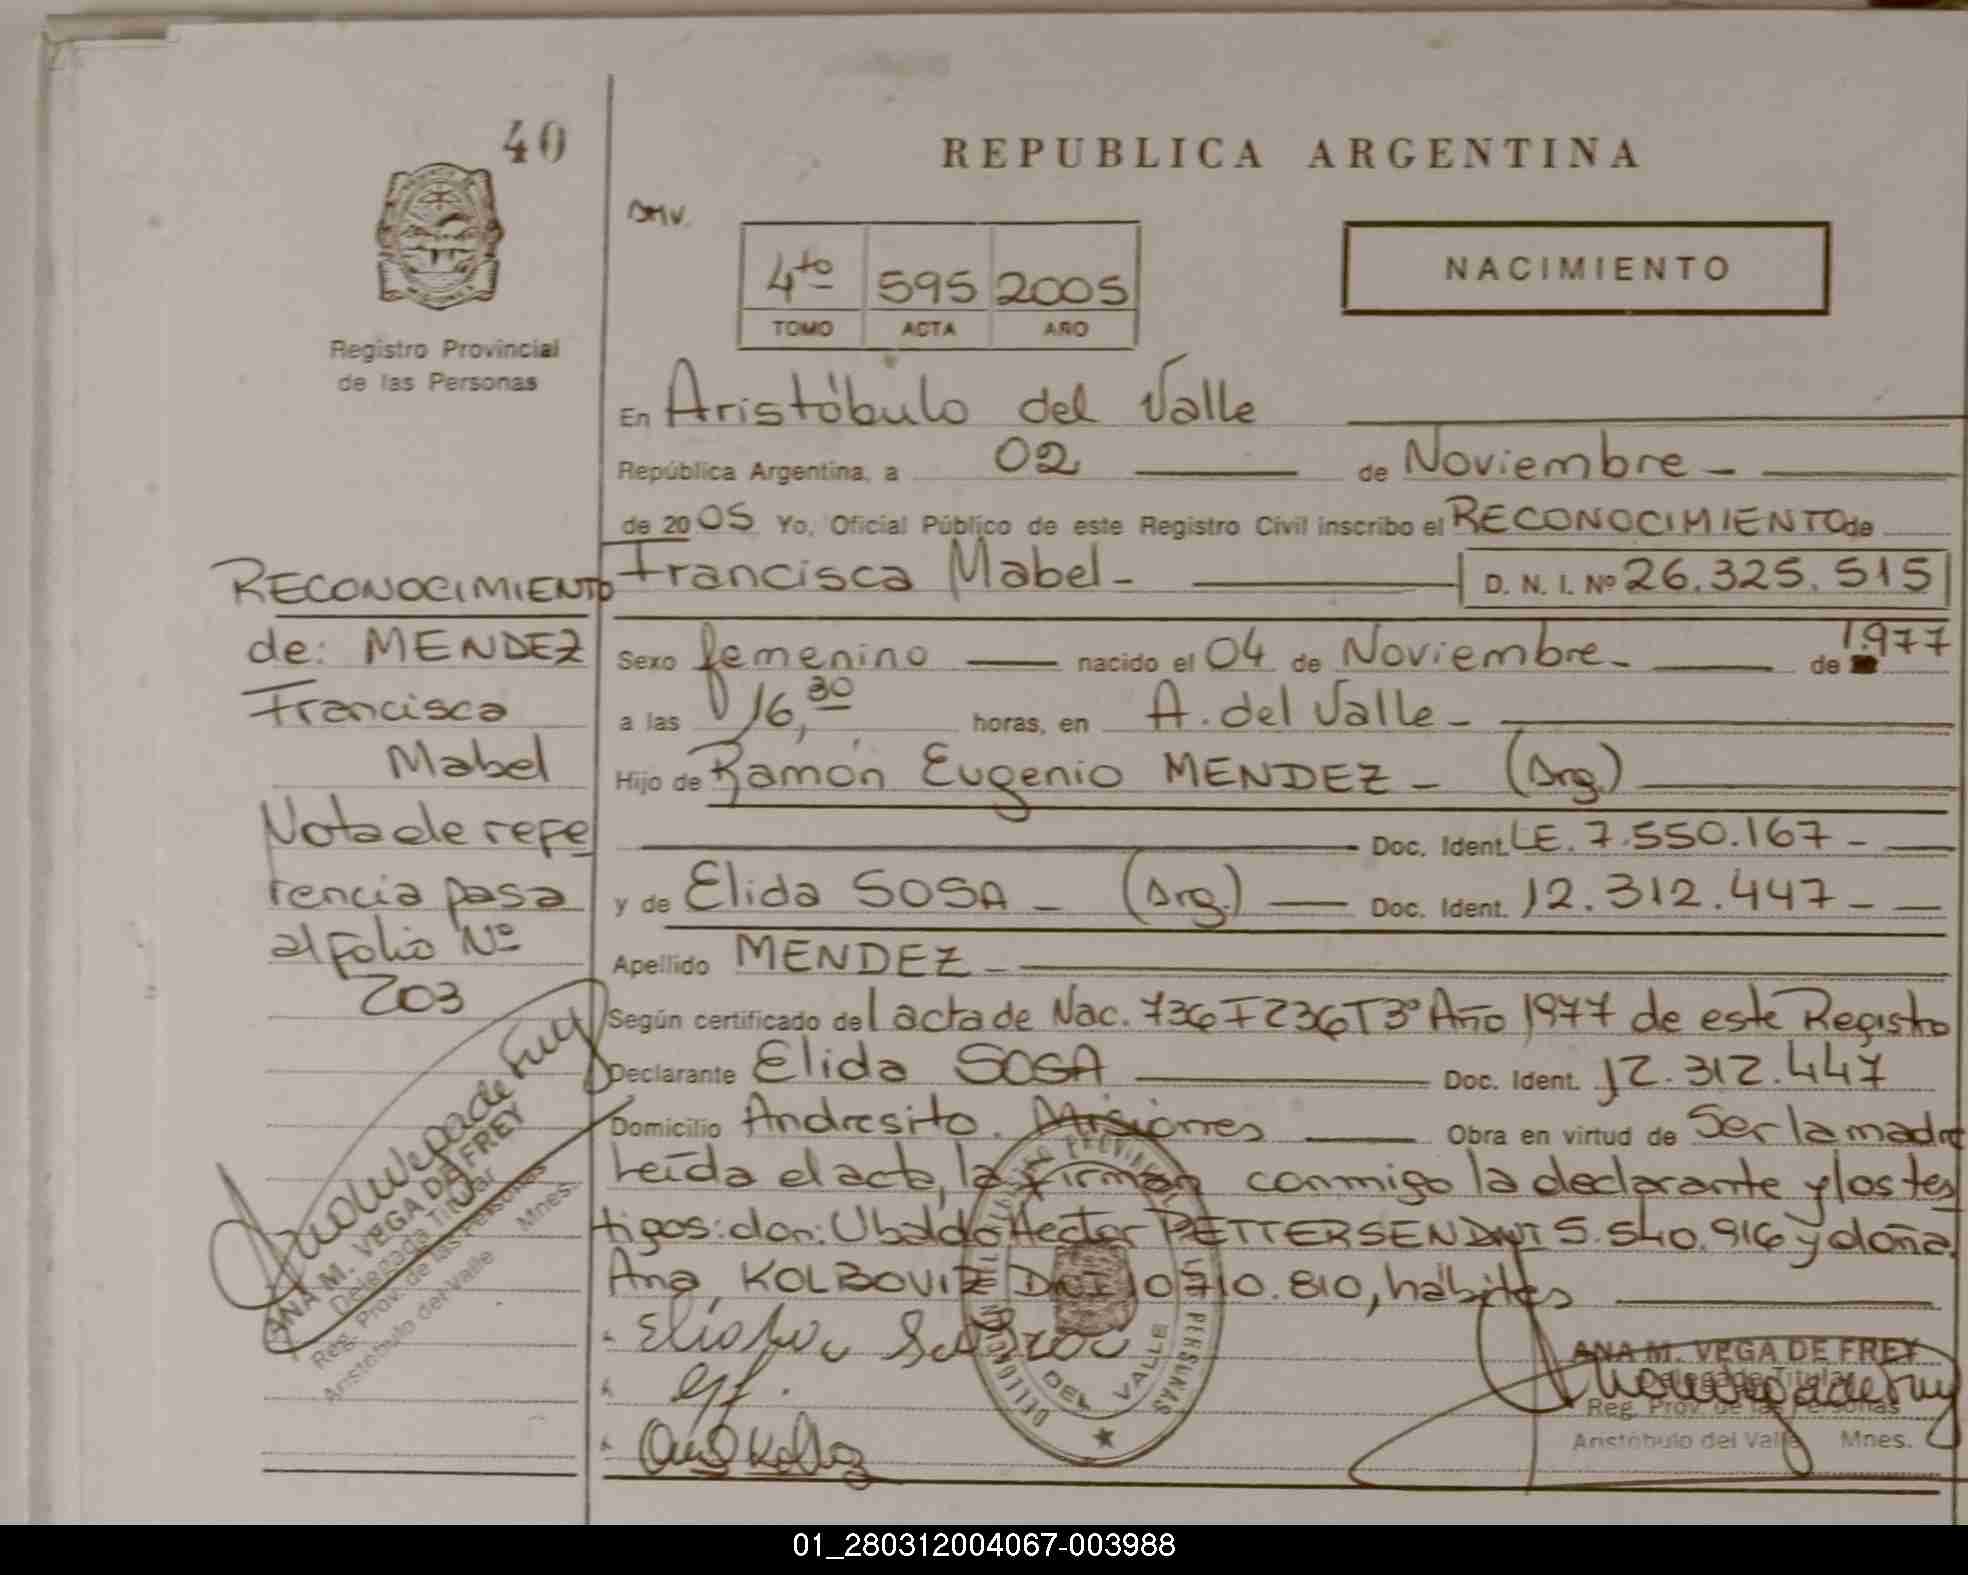 40
REPUBLICA ARGENTINA
4to 595 2005
TOMO ACTA AÑO
NACIMIENTO
Registro Provincial
de las Personas
En Aristóbulo del Valle
República Argentina, a 02 de Noviembre -
de 2005 Yo, Oficial Público de este Registro Civil inscribo el RECONOCIMIENTO de
Francisca Mabel - D. N. I. Nº 26.325.515
Sexo femenino nacido el 04 de Noviembre - de 1.977
a las 16,30 horas, en A. del Valle -
Hijo de Ramón Eugenio MENDEZ - (Arg.)
Doc. Ident. LE. 7.550.167 -
y de Elida SOSA - (Arg.) Doc. Ident. 12.312.447 -
Apellido MENDEZ -
Según certificado del acta de Nac. 736 F 236 T 3º Año 1977 de este Registro
Declarante Elida SOSA Doc. Ident. 12.312.447
Domicilio Andresito. Misiones Obra en virtud de Ser la madre
Leída el acta, la firman conmigo la declarante y los tes
tigos: don: Ubaldo Hector PETTERSEN DNI 5.540.916 y doña
Ana, KOLBOVITZ DNI 10.710.810, hábiles
ANA M. VEGA DE FREY
Delegada Titular
Reg. Prov. de las Personas
Aristóbulo del Valle Mnes.
DEL VALLE
RECONOCIMIENTO
de: MENDEZ
Francisca
Mabel
Nota de refe
rencia pasa
al Folio Nº
203
ANA M. VEGA DE FREY
Delegada Titular
Reg. Prov. de las Personas
Aristóbulo del Valle Mnes.
01_280312004067-003988